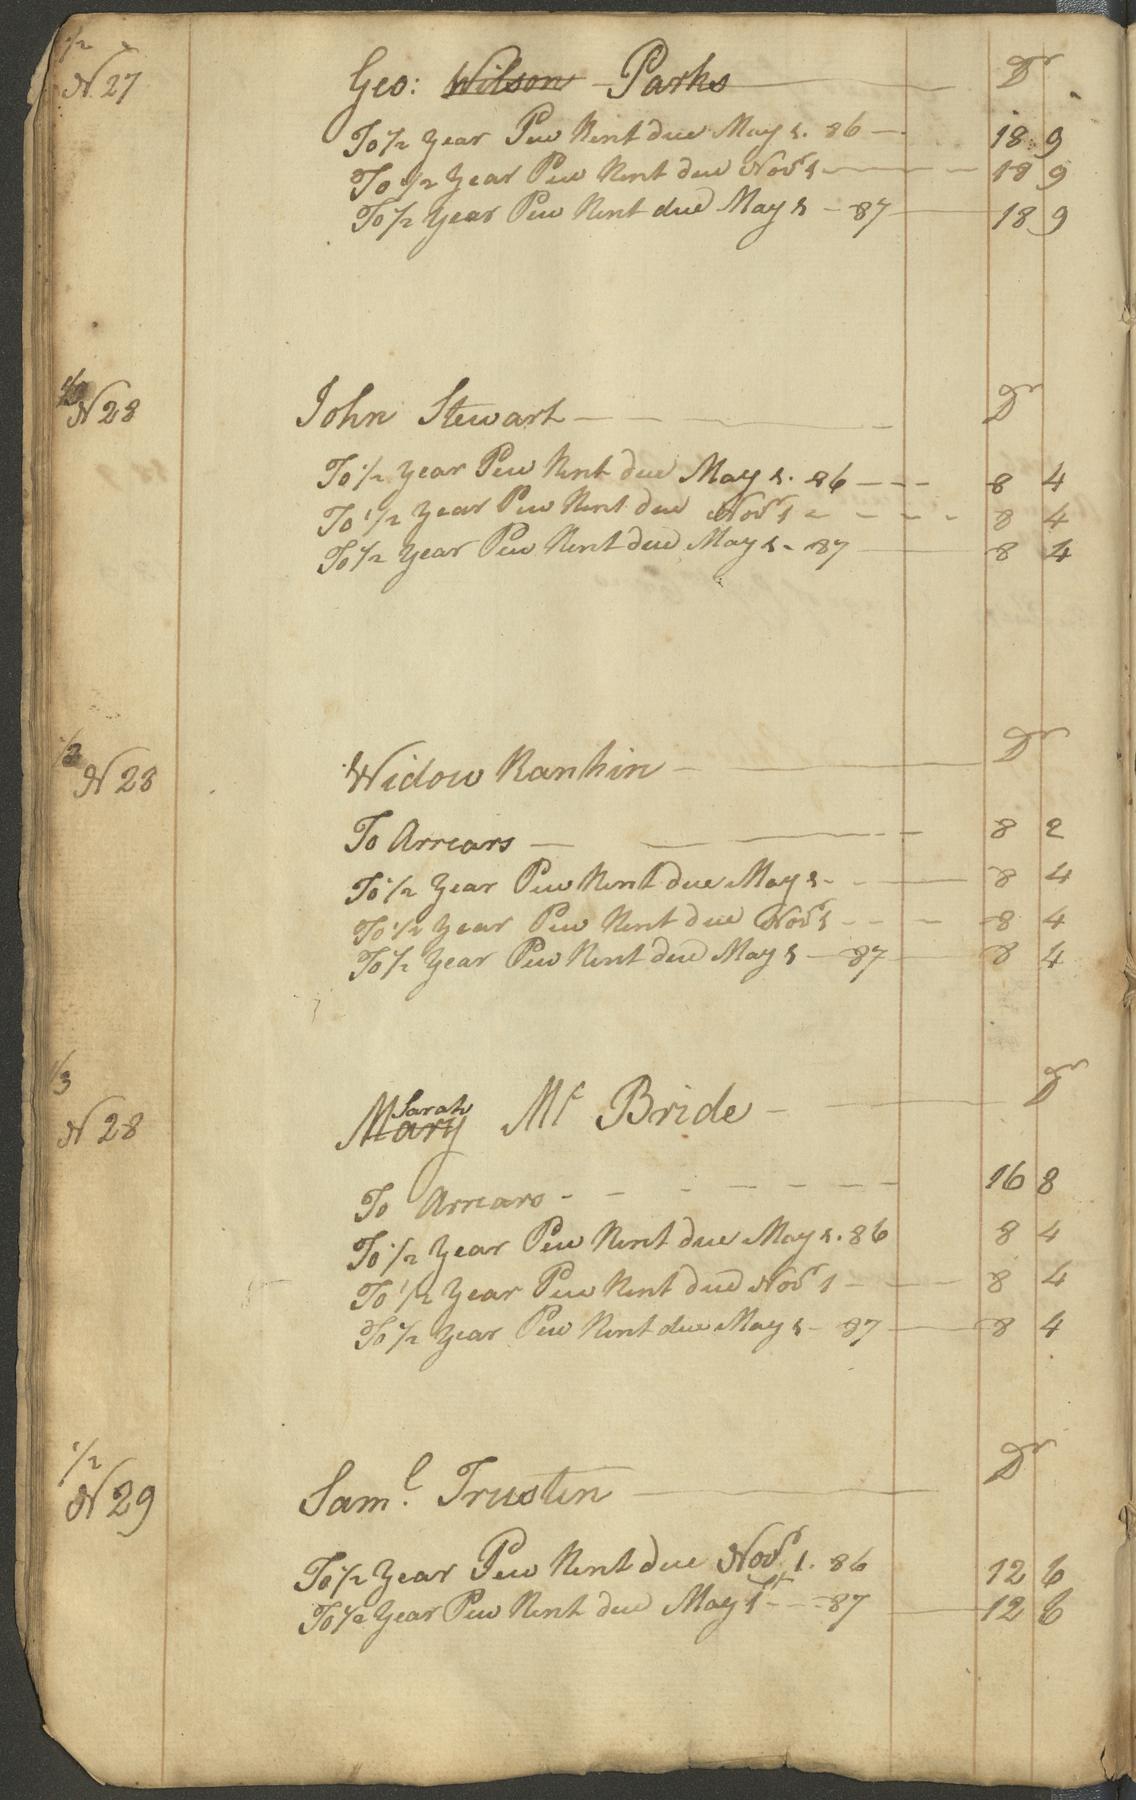 1/2
N 27 Geo: Wilson Parks Dr
To 1/2 Year Pew Rent due May 1. 86 18 9
To 1/2 Year Pew Rent due Novr 1 18 9
To 1/2 Year Pew Rent due May 1 - 87 18 9
N 28 John Stewart Dr
To 1/2 Year Pew Rent due May 1. 86 8 4
To 1/2 Year Pew Rent due Novr 1 8 4
To 1/2 Year Pew Rent due May 1 - 87 8 4
N 28 Widow Rankin Dr
To Arrears 8 2
To 1/2 Year Pew Rent due May 1 - 8 4
To 1/2 Year Pew Rent due Novr 1 8 4
To 1/2 Year Pew Rent due May 1 - 87 8 4
1/3
Sarah
N 28 Mary Mc Bride - Dr
To Arrears - 16 8
To 1/2 Year Pew Rent due May 1. 86 8 4
To 1/2 Year Pew Rent due Novr 1 - 8 4
To 1/2 Year Pew Rent due May 1 - 87 8 4
1/2
N 29 Saml. Trustin Dr
To 1/2 Year Pew Rent due Novr 1. 86 12 6
To 1/2 Year Pew Rent due May 1st - 87 12 6